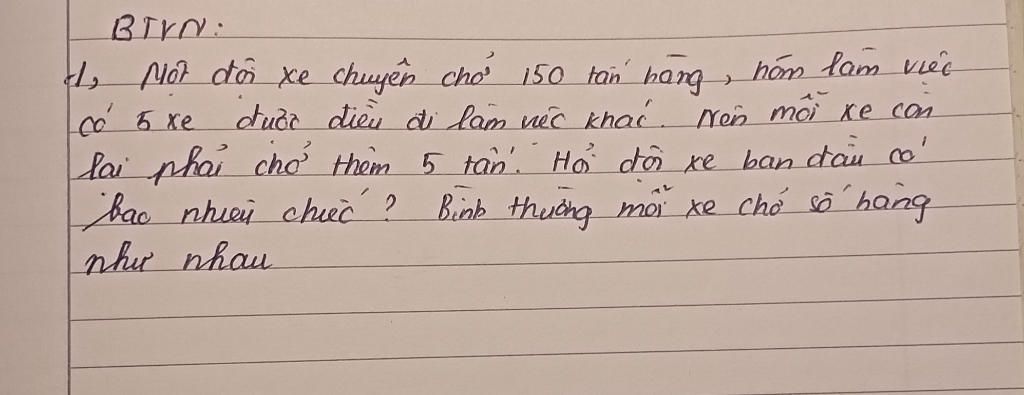 BTVN:
1, Một đội xe chuyên chở 150 tấn hàng, hôm làm việc
có 5 xe được điều đi làm việc khác. Nên mỗi xe còn
lại phải chở thêm 5 tấn. Hỏi đội xe ban đầu có
bao nhiêu chiếc? Bình thường mỗi xe chở số hàng
như nhau